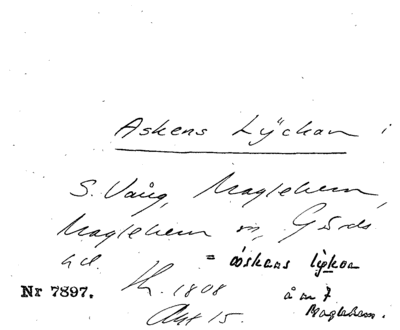 Askens Lÿckan i
S. Vång, Maglehem,
Maglehem sn, Gärds
hd. = åskans lykan
Nr 7897. Th. 1808 å nr 7
Akt 15. Maglehem.